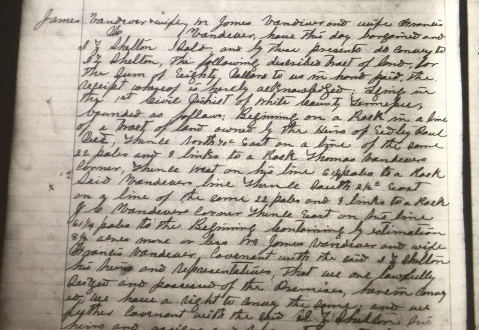 James Vandever & wife, We James Vandiver and wife Francis
To Vandever, have this day bargained and
S Z Shelton Sold, and by these presents do convey to
S Z Shelton, the following described tract of land, for
the Sum of Eighty, Dollars to us in hand paid, the
receipt whereof is hereby acknowledged; Lying in
the 1st Civil District of White County Tennessee,
bounded as follows; Beginning on a Rock in a line
of a tract of land owned by the Heirs of Paul
Decd, Thence North East on a line of the same
22 poles and 8 links to a Rock Thomas Vandevers
Corner, Thence West on his line 61¼ poles to a Rock
Said Vandevers line Thence South 2½° East
on a line of the same 22 poles and 8 links to a Rock
J C Vandevers Corner Thence East on his line
61¼ poles to the Beginning Containing by estimation
8½ acres more or less We James Vandiver and wife
Francis Vandever, Covenant with the said S Z Shelton
his heirs and representatives, That we are lawfully
Seized and possessed of the Premises, herein convey
ed, we have a right to convey the same, and we
further covenant with the said S. Z Shelton, his
heirs and